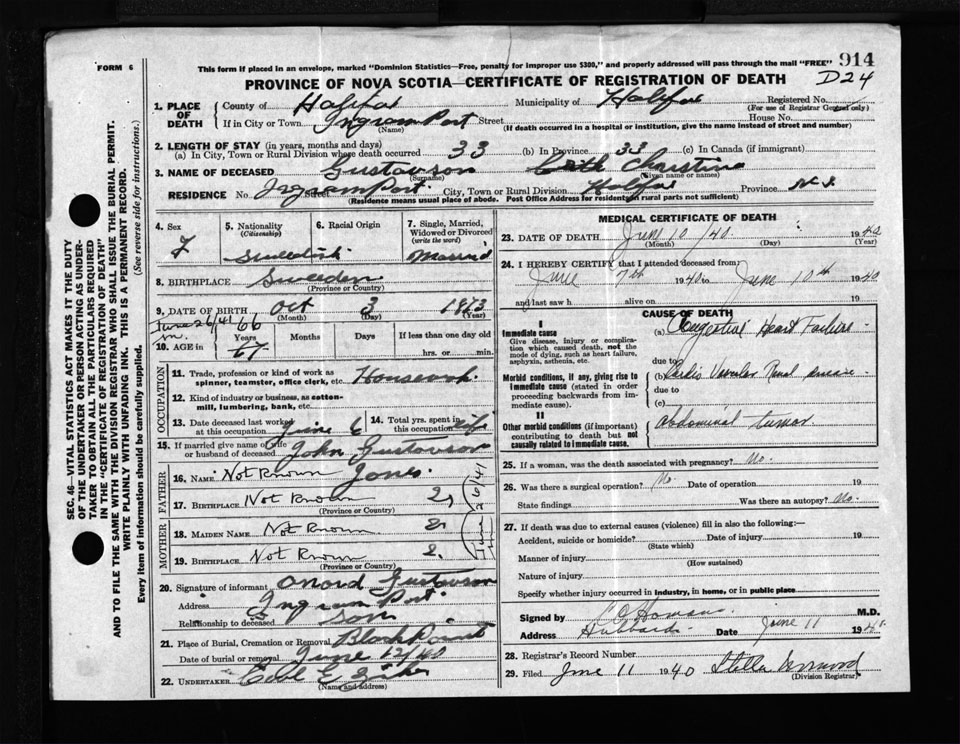 914
FORM 6
This form if placed in an envelope, marked "Dominion Statistics—Free, penalty for improper use $300," and properly addressed will pass through the mail "FREE"
D24
PROVINCE OF NOVA SCOTIA—CERTIFICATE OF REGISTRATION OF DEATH
SEC. 46—VITAL STATISTICS ACT MAKES IT THE DUTY
OF THE UNDERTAKER OR PERSON ACTING AS UNDER-
TAKER TO OBTAIN ALL THE PARTICULARS REQUIRED
IN THE "CERTIFICATE OF REGISTRATION OF DEATH"
AND TO FILE THE SAME WITH THE DIVISION REGISTRAR WHO SHALL ISSUE THE BURIAL PERMIT.
WRITE PLAINLY WITH UNFADING INK. THIS IS A PERMANENT RECORD.
Every item of information should be carefully supplied. (See reverse side for instructions.)
1. PLACE OF DEATH
County of Halifax Municipality of Halifax Registered No.
(For use of Registrar General only)
If in City or Town Ingram Port Street House No.
(Name) (If death occurred in a hospital or institution, give the name instead of street and number)
2. LENGTH OF STAY (in years, months and days)
(a) In City, Town or Rural Division where death occurred 33 (b) In Province 33 (c) In Canada (if immigrant)
3. NAME OF DECEASED Gustavson Christine
(Surname) (Given name or names)
RESIDENCE No. Ingram Port. City, Town or Rural Division Halifax Province N.S.
(Residence means usual place of abode. Post Office Address for residents in rural parts not sufficient)
4. Sex F
5. Nationality (Citizenship) Swedish
6. Racial Origin
7. Single, Married, Widowed or Divorced (write the word) Married
8. BIRTHPLACE Sweden
(Province or Country)
9. DATE OF BIRTH Oct 3 1873
(Month) (Day) (Year)
June 26/41 66
10. AGE in Years 67 Months Days If less than one day old hrs. or min.
OCCUPATION
11. Trade, profession or kind of work as spinner, teamster, office clerk, etc. Housework.
12. Kind of industry or business, as cotton-mill, lumbering, bank, etc.
13. Date deceased last worked at this occupation June 6
14. Total yrs. spent in this occupation life
15. If married give name of wife or husband of deceased John Gustavson
FATHER
16. NAME Not Known Jones.
17. BIRTHPLACE Not Known 2,
MOTHER
18. MAIDEN NAME Not Known 2.
19. BIRTHPLACE Not Known 2.
(Province or Country)
June 26/41
20. Signature of informant Gustavson
Address Ingram Port.
Relationship to deceased son
21. Place of Burial, Cremation or Removal Black Point
Date of burial or removal June 12/40
22. UNDERTAKER
(Name and address)
MEDICAL CERTIFICATE OF DEATH
23. DATE OF DEATH June 10/40. 1940
(Month) (Day) (Year)
24. I HEREBY CERTIFY that I attended deceased from:
June 7th 1940 to June 10th 1940
and last saw h alive on 19
CAUSE OF DEATH
I
Immediate cause
Give disease, injury or complication which caused death, not the mode of dying, such as heart failure, asphyxia, asthenia, etc.
(a) Congestive Heart Failure
due to
Morbid conditions, if any, giving rise to immediate cause (stated in order proceeding backwards from immediate cause).
(b) Cardio Vascular Renal disease
due to
(c)
II
Other morbid conditions (if important) contributing to death but not causally related to immediate cause.
Abdominal tumor
25. If a woman, was the death associated with pregnancy? No.
26. Was there a surgical operation? No. Date of operation 19
State findings Was there an autopsy? No.
27. If death was due to external causes (violence) fill in also the following:—
Accident, suicide or homicide? Date of injury 19
(State which)
Manner of injury
(How sustained)
Nature of injury
Specify whether injury occurred in industry, in home, or in public place
Signed by M.D.
Address Hubbards. Date June 11 1940.
28. Registrar's Record Number
29. Filed June 11 1940 Stella
(Division Registrar)